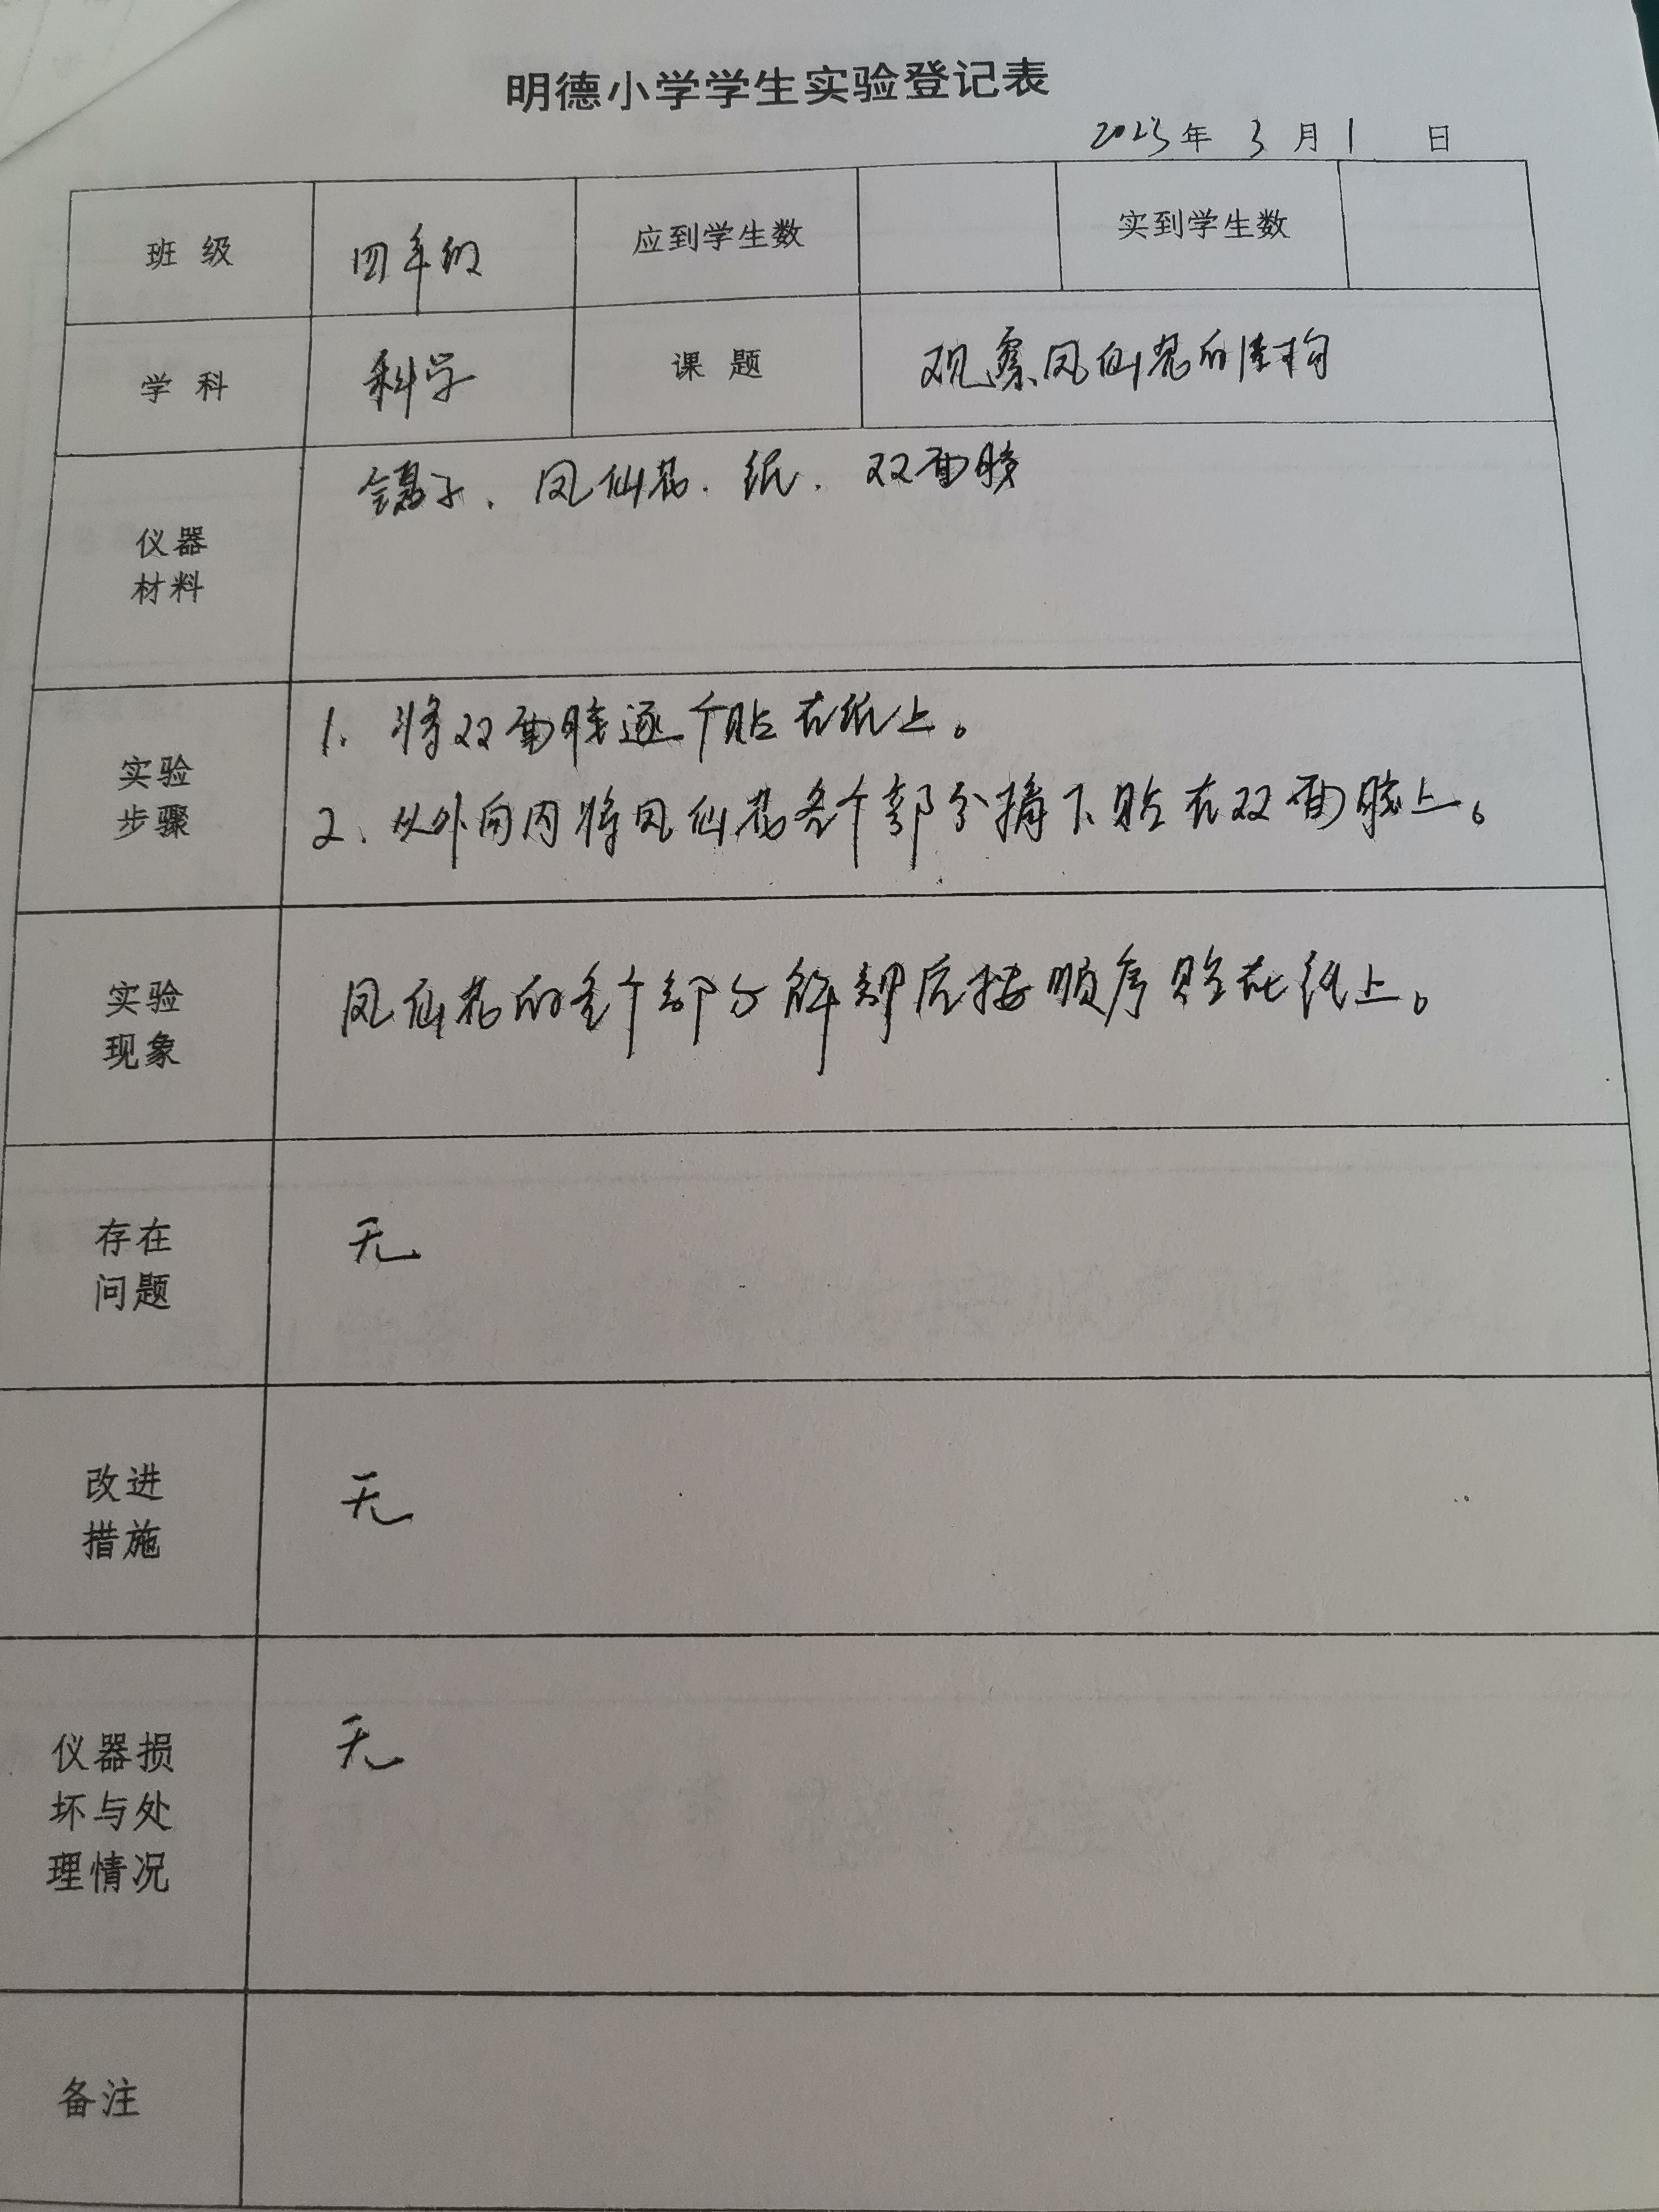 明德小学学生实验登记表
2023年 3月1日
班级 四年级 应到学生数 实到学生数
学科 科学 课题 观察凤仙花的结构
仪器
材料
镊子、凤仙花、纸、双面胶
实验
步骤
1、将双面胶逐个贴在纸上。
2、从外向内将凤仙花各个部分摘下贴在双面胶上。
实验
现象
凤仙花的各个部分解剖后按顺序贴在纸上。
存在
问题
无
改进
措施
无
仪器损
坏与处
理情况
无
备注